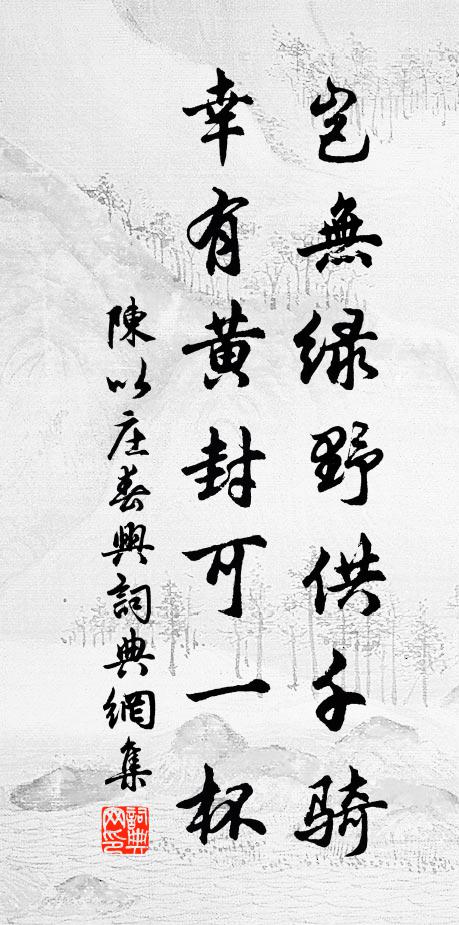 豈無緑野供千騎
幸有黄封可一杯
陳以庄春興詞典網集
詞典網印